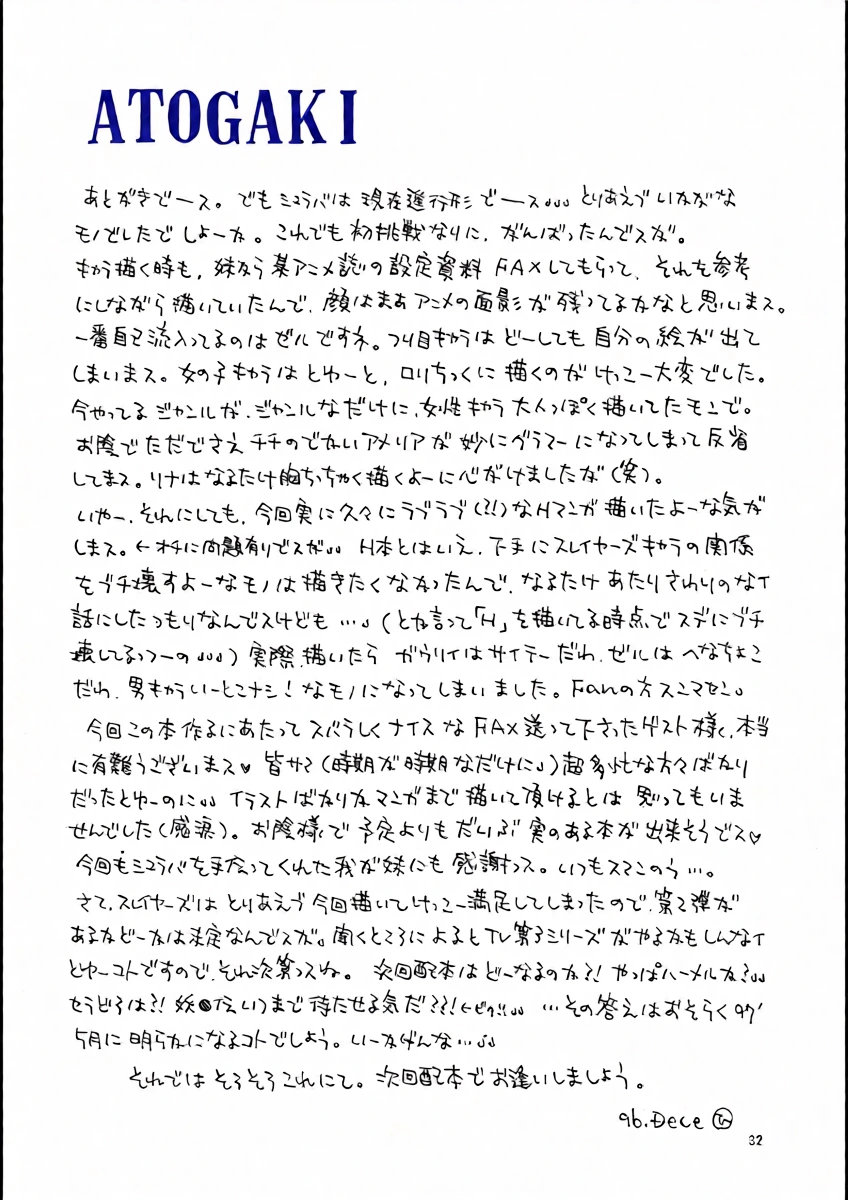 ATOGAKI
あとがきでース。でもシュラバは現在進行形でース。。。とりあえずいかがな
モノでしたでしょーか。これでも初挑戦なりに、がんばったんでスが。
キャラ描く時も、妹から某アニメ誌の設定資料FAXしてもらって、それを参考
にしながら描いていたんで、顔はまあアニメの面影が残ってるかなと思いまス。
一番自己流入ってるのはゼルですネ。つり目キャラはどーしても自分の絵が出て
しまいまス。女の子キャラはとゆーと、ロリちっくに描くのがけっこー大変でした。
今やってるジャンルが、ジャンルなだけに、女性キャラ大人っぽく描いてたモンで。
お陰でただでさえチチのでかいアメリアが妙にグラマーになってしまって反省
してまス。リナはなるたけ胸ちっちゃく描くよーに心がけましたが(笑)。
いやー、それにしても、今回実に久々にラブラブ(?!)なHマンガ描いたよーな気が
しまス。←オチに問題有りでスが。。H本とはいえ、下手にスレイヤーズキャラの関係
をブチ壊すよーなモノは描きたくなかったんで、なるたけあたりさわりのなイ
話にしたつもりなんでスけども…。(とか言って「H」を描いてる時点でスデにブチ
壊してるっつーの。。。)実際、描いたらガウリイはサイテーだわ、ゼルはへなちょこ
だわ、男キャラいーとこナシ!なモノになってしまいました。Fanの方スンマセン。
今回この本作るにあたってスバらしくナイスなFAX送って下さったゲスト様ぐ、本当
に有難うございまス♥皆サマ(時期が時期なだけに。)超多忙な方々ばかり
だったとゆーのに。。イラストばかりかマンガまで描いて頂けるとは思ってもいま
せんでした(感涙)。お陰様で予定よりもだいぶ実のある本が出来そうでス♡
今回もシュラバを手伝ってくれた我が妹にも感謝っス。いつもスマンのう…。
さて、スレイヤーズはとりあえず今回描いてけっこー満足してしまったので、第2弾が
あるかどーかは未定なんでスが。聞くところによるとTV第3シリーズがやるかもしんなイ
とゆーコトですので、それ次第っスね。次回配本はどーなるのか?!やっぱハーメルか?。。
セラどろは?!妖●伝いつまで待たせる気だ??!←ビクッ。。…その答えはおそらく97'
5月に明らかになるコトでしょう。いーかげんな…。。
それではそろそろこれにて。次回配本でお逢いしましょう。
96.Dece
32